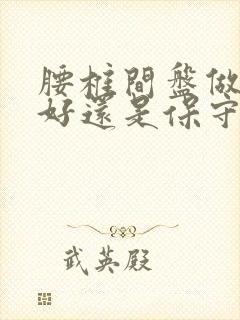 腰柱間盤做
好還是保守
武英殿